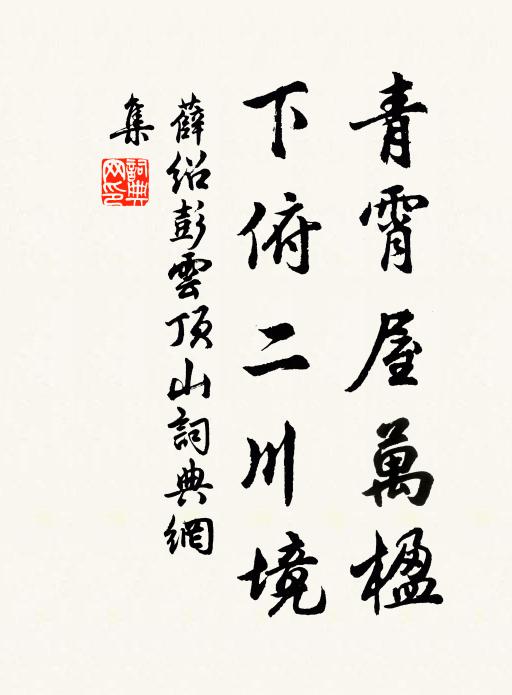 青霄屋萬楹
下俯二川境
薛紹彭雲頂山詞典網
集
詞典網印